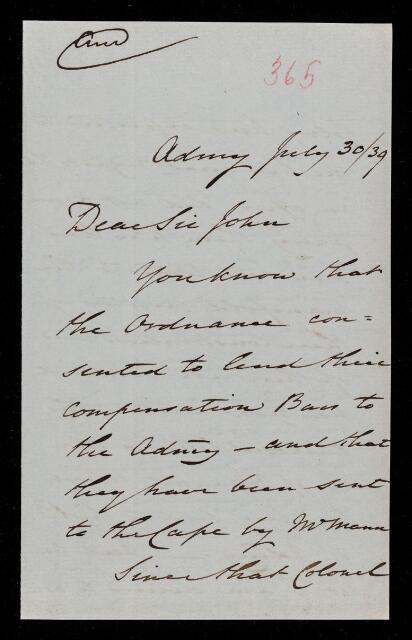 365
Admy July 30/39
Dear Sir John
You know that
the Ordnance con=
sented to lend their
compensation Bars to
the Admy – and that
they have been sent
to the Cape by Mr Mann
Since that Colonel